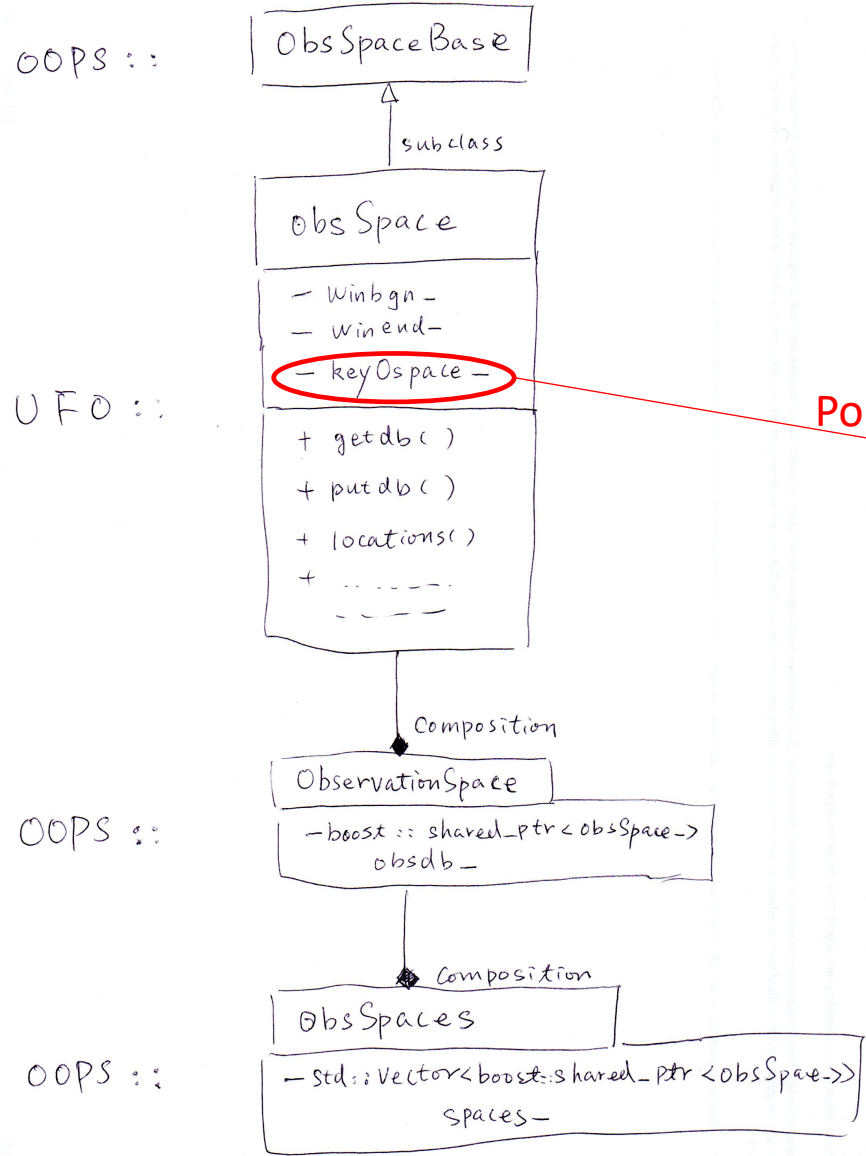 OOPS ::
ObsSpaceBase
subclass
ObsSpace
- Winbgn_
- winend_
- keyOspace_
UFO ::
Po
+ getdb()
+ putdb()
+ locations()
+
Composition
ObservationSpace
OOPS ::
-boost :: shared_ptr<obsSpace_>
obsdb_
Composition
ObsSpaces
OOPS ::
- std::Vector<boost::shared_ptr<obsSpace_>>
spaces_